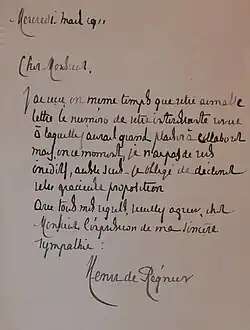 Mercredi mail 1911
Cher Monsieur,
J'ai reçu en même temps que votre aimable
lettre le numéro de votre intéressante revue
à laquelle j'aurai grand plaisir à collaborer
mais, en ce moment, je n'ai pas de vers
inédits, aussi suis-je obligé de décliner
votre gracieuse proposition
Avec tous mes regrets, veuillez agréer, cher
Monsieur l'expression de ma sincère
sympathie :
Henri de Régnier